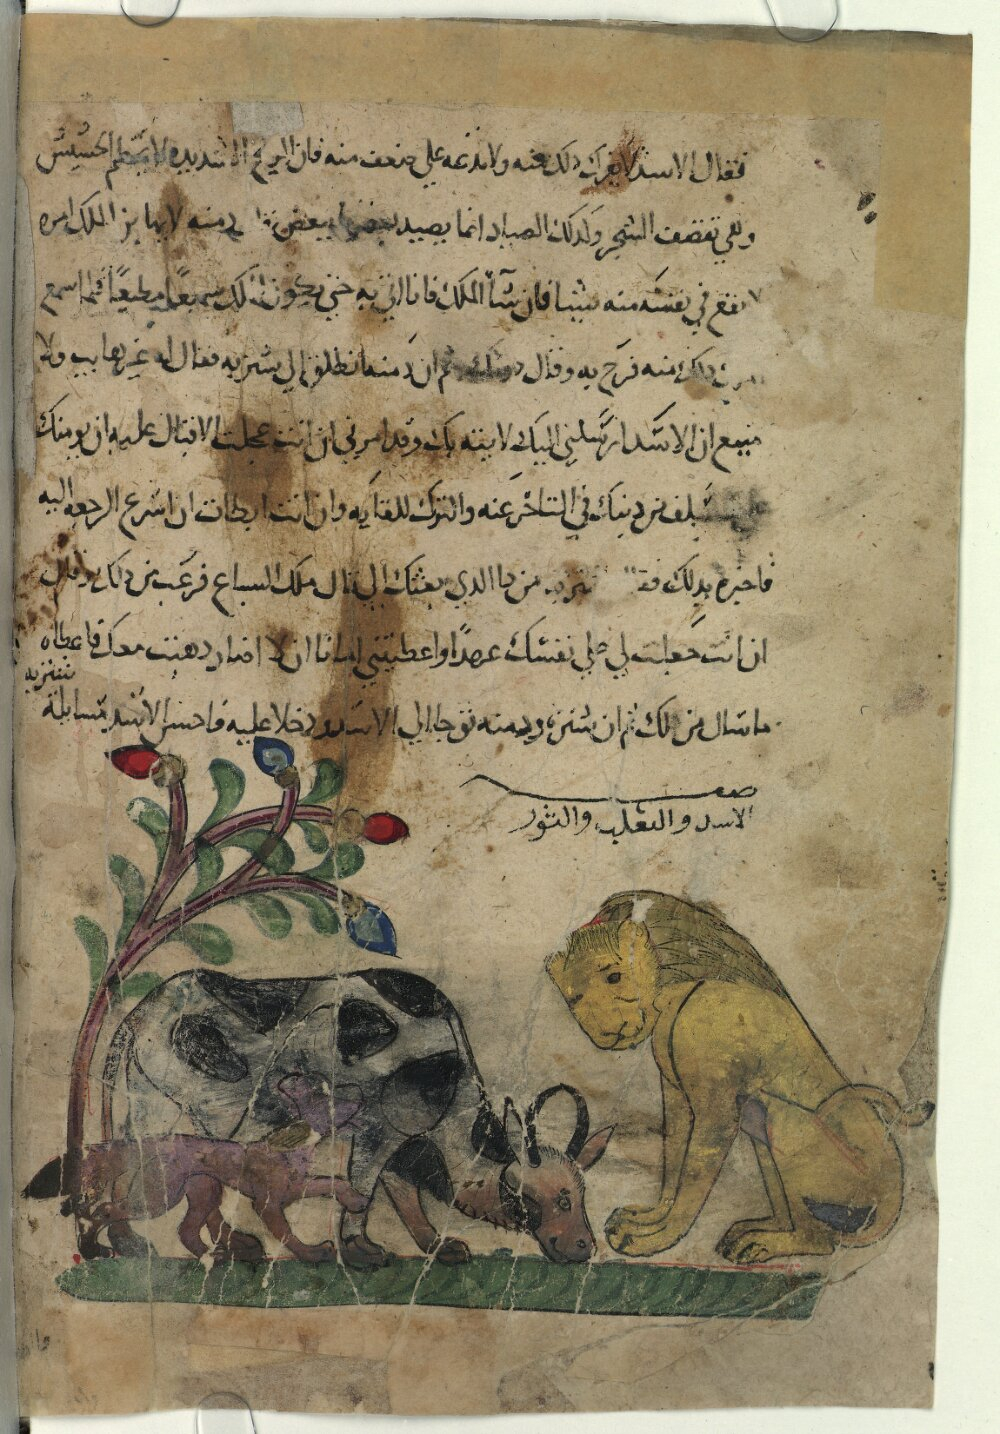 فقال الاسد لا يغرك ذلك منه ولا تدعه علي ضعف منه فان الريح الشديده لا تحطم الحشيش
وهي تقصف الشجر وكذلك الصياد انما يصيد بعضها ببعض قال دمنه لا يهابن الملك امره
ولا يقع في نفسه منه شيا فان شآ الملك فانا اتي به حتي يكون لك سميعًا مطيعًا فلما سمع
ذلك منه فرح به وقال دونك ثم ان دمنه انطلق الي شنزبه فقال له غير هايب ولا
متتعتع ان الاسد ارسلني اليك لاتيه بك وقد امرني ان انت عجلت الاقبال عليه ان يومنك
علي ما سلف من ذنبك في التاخر عنه والترك للقايه وان انت ابطات ان اسرع الرجعه اليه
فاخبره بذلك فقال شنزبه من ذا الذي بعثك الي قال ملك السباع فرعب من ذلك وقال
ان انت جعلت لي علي نفسك عهدًا واعطيتني امانا ان لا اضار ذهبت معك فاعطاه
شنزبه
ما سال من ذلك ثم ان شنزبه ودمنه توجها الي الاسد ودخلا عليه فاحسن الاسد مسايلة
صفه
الاسد والثعلب والثور